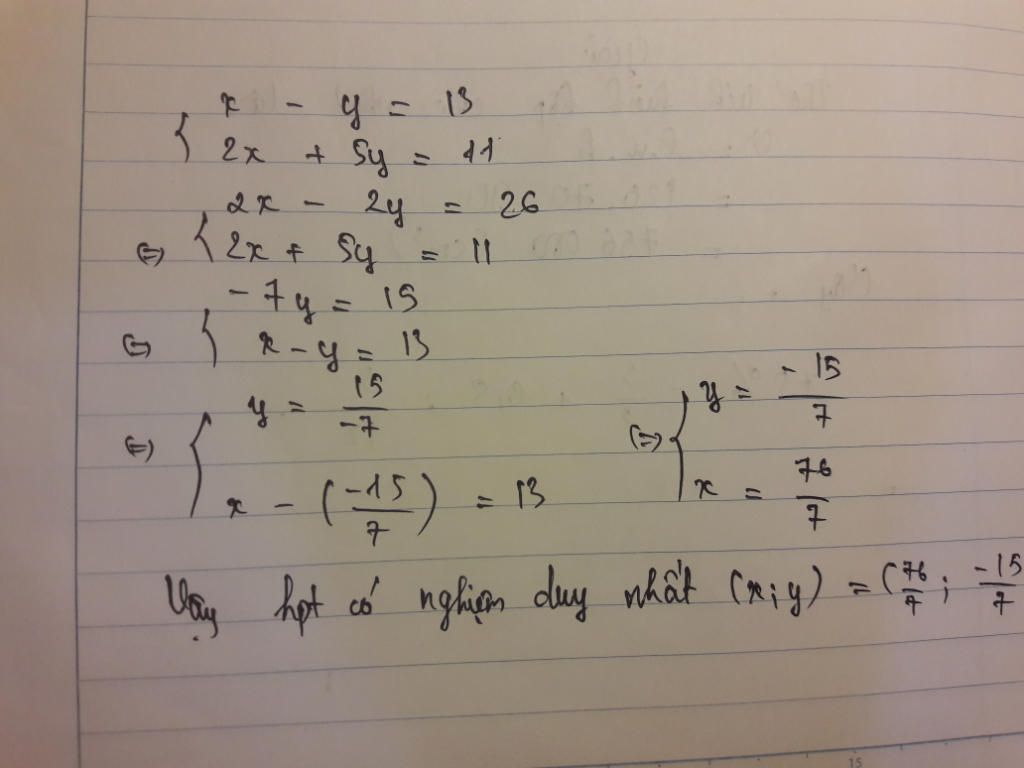 { x - y = 13
2x + 5y = 11
⇔ { 2x - 2y = 26
2x + 5y = 11
⇔ { -7y = 15
x - y = 13
⇔ { y = 15/-7
x - (-15/7) = 13
⇔ { y = -15/7
x = 76/7
Vậy hpt có nghiệm duy nhất (x; y) = (76/7; -15/7
15